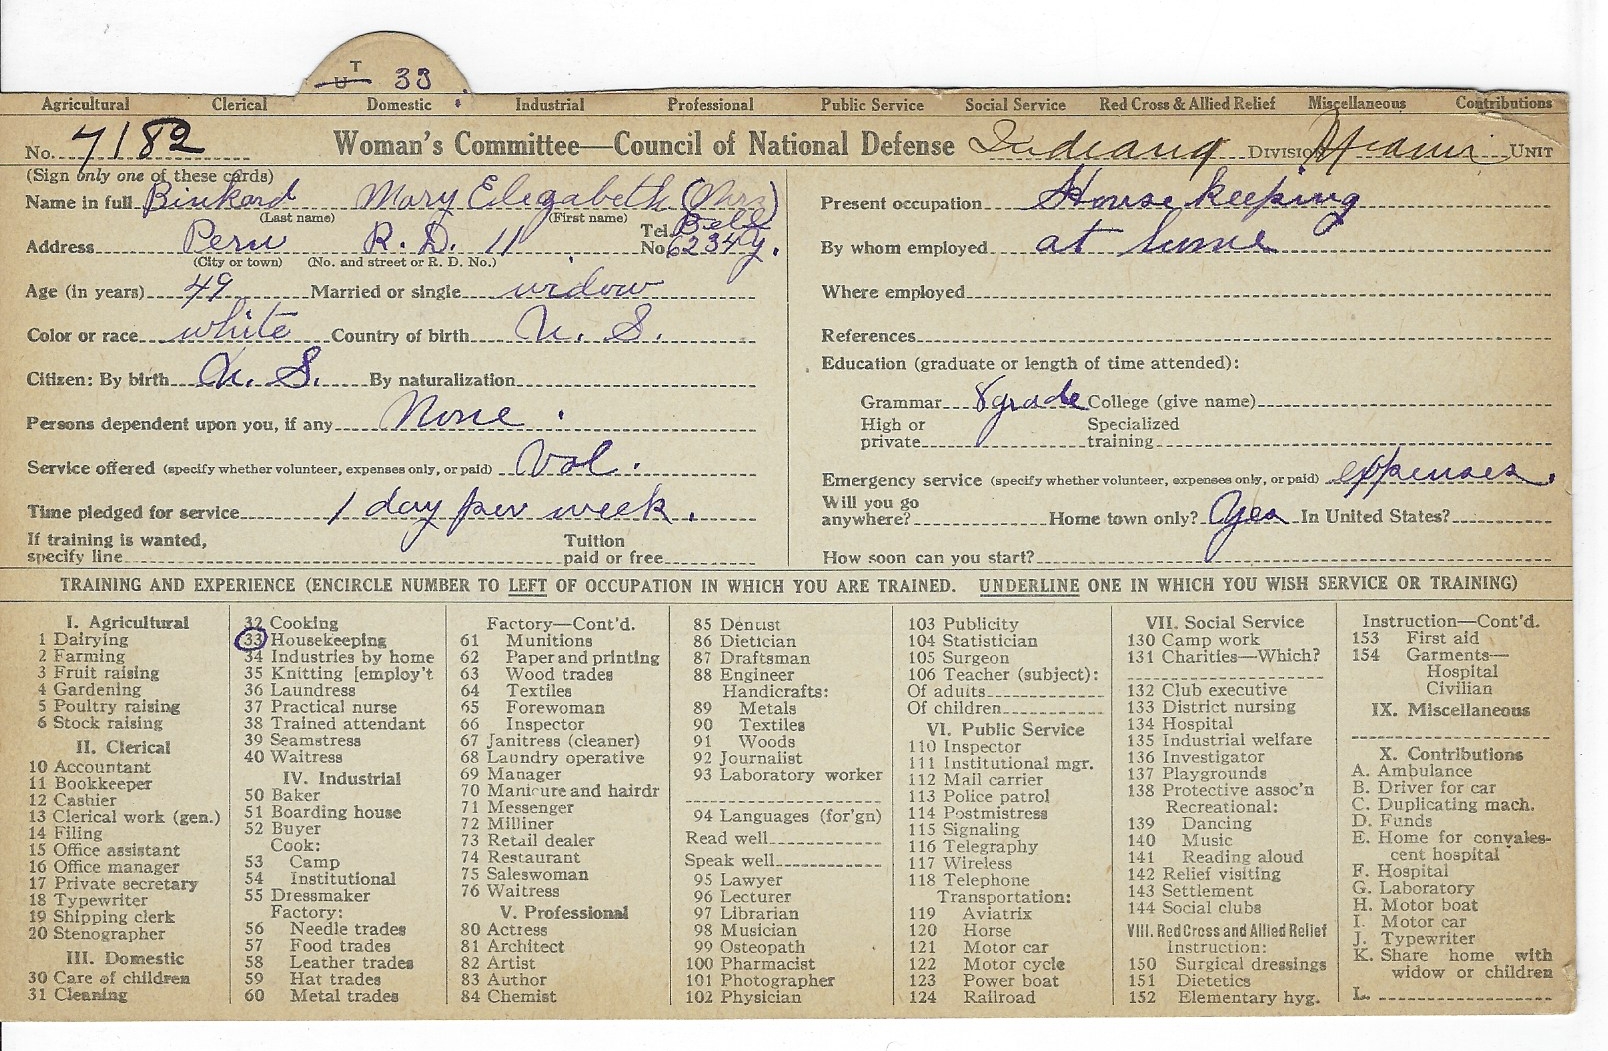 T
U 33
Agricultural Clerical Domestic Industrial Professional Public Service Social Service Red Cross & Allied Relief Miscellaneous Contributions
No. 7182 Woman's Committee—Council of National Defense Indiana DIVISION Miami UNIT
(Sign only one of these cards)
Name in full Binkerd Mary Elezabeth (Mrs)
(Last name) (First name)
Address Peru R. D. 11 Tel. No. Bell 6234 y.
(City or town) (No. and street or R. D. No.)
Age (in years) 49 Married or single widow
Color or race white Country of birth U. S.
Citizen: By birth U. S. By naturalization
Persons dependent upon you, if any None.
Service offered (specify whether volunteer, expenses only, or paid) Vol.
Time pledged for service 1 day per week.
If training is wanted, specify line Tuition paid or free
Present occupation House keeping
By whom employed at home
Where employed
References
Education (graduate or length of time attended):
Grammar 8 grade College (give name)
High or private Specialized training
Emergency service (specify whether volunteer, expenses only, or paid) expenses.
Will you go anywhere? Home town only? Yes In United States?
How soon can you start?
TRAINING AND EXPERIENCE (ENCIRCLE NUMBER TO LEFT OF OCCUPATION IN WHICH YOU ARE TRAINED. UNDERLINE ONE IN WHICH YOU WISH SERVICE OR TRAINING)
I. Agricultural
1 Dairying
2 Farming
3 Fruit raising
4 Gardening
5 Poultry raising
6 Stock raising
II. Clerical
10 Accountant
11 Bookkeeper
12 Cashier
13 Clerical work (gen.)
14 Filing
15 Office assistant
16 Office manager
17 Private secretary
18 Typewriter
19 Shipping clerk
20 Stenographer
III. Domestic
30 Care of children
31 Cleaning
32 Cooking
33 Housekeeping
34 Industries by home
35 Knitting [employ't
36 Laundress
37 Practical nurse
38 Trained attendant
39 Seamstress
40 Waitress
IV. Industrial
50 Baker
51 Boarding house
52 Buyer
Cook:
53 Camp
54 Institutional
55 Dressmaker
Factory:
56 Needle trades
57 Food trades
58 Leather trades
59 Hat trades
60 Metal trades
Factory—Cont'd.
61 Munitions
62 Paper and printing
63 Wood trades
64 Textiles
65 Forewoman
66 Inspector
67 Janitress (cleaner)
68 Laundry operative
69 Manager
70 Manicure and hairdr
71 Messenger
72 Milliner
73 Retail dealer
74 Restaurant
75 Saleswoman
76 Waitress
V. Professional
80 Actress
81 Architect
82 Artist
83 Author
84 Chemist
85 Dentist
86 Dietician
87 Draftsman
88 Engineer
Handicrafts:
89 Metals
90 Textiles
91 Woods
92 Journalist
93 Laboratory worker
94 Languages (for'gn)
Read well
Speak well
95 Lawyer
96 Lecturer
97 Librarian
98 Musician
99 Osteopath
100 Pharmacist
101 Photographer
102 Physician
103 Publicity
104 Statistician
105 Surgeon
106 Teacher (subject):
Of adults
Of children
VI. Public Service
110 Inspector
111 Institutional mgr.
112 Mail carrier
113 Police patrol
114 Postmistress
115 Signaling
116 Telegraphy
117 Wireless
118 Telephone
Transportation:
119 Aviatrix
120 Horse
121 Motor car
122 Motor cycle
123 Power boat
124 Railroad
VII. Social Service
130 Camp work
131 Charities—Which?
132 Club executive
133 District nursing
134 Hospital
135 Industrial welfare
136 Investigator
137 Playgrounds
138 Protective assoc'n
Recreational:
139 Dancing
140 Music
141 Reading aloud
142 Relief visiting
143 Settlement
144 Social clubs
VIII. Red Cross and Allied Relief
Instruction:
150 Surgical dressings
151 Dietetics
152 Elementary hyg.
Instruction—Cont'd.
153 First aid
154 Garments—
Hospital
Civilian
IX. Miscellaneous
X. Contributions
A. Ambulance
B. Driver for car
C. Duplicating mach.
D. Funds
E. Home for convales-
cent hospital
F. Hospital
G. Laboratory
H. Motor boat
I. Motor car
J. Typewriter
K. Share home with
widow or children
L.